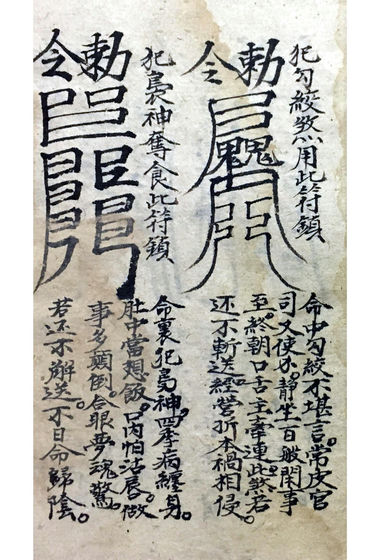 犯勾絞煞用此符鎖
勅令
命中勾絞不堪言。常皮官
司又使。靜坐百般閑事
至。終朝口舌主牽連。此煞若
还不斬送。經營折本禍相侵
犯梟神奪食此符鎖
勅令
命裏犯梟神。四季病纏身。
肚中當想飯。口內怕沾唇。做
事多顛倒。合眼夢魂驚。
若还不辦送。不日命歸陰。